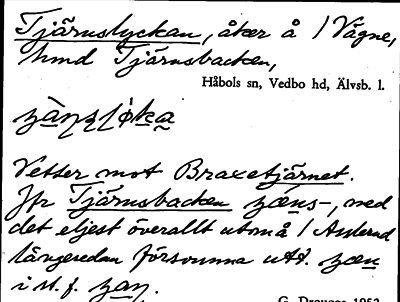 Tjärnslyckan, åker å 1 Vägne,
hmd Tjärnsbacken,
Håbols sn, Vedbo hd, Älvsb. l.
Vetter mot Braxetjärnet.
Jfr Tjärnsbacken med
det eljest överallt utom å 1
långeredan försvunna utt.
i st. f.
G. Drougge 1953